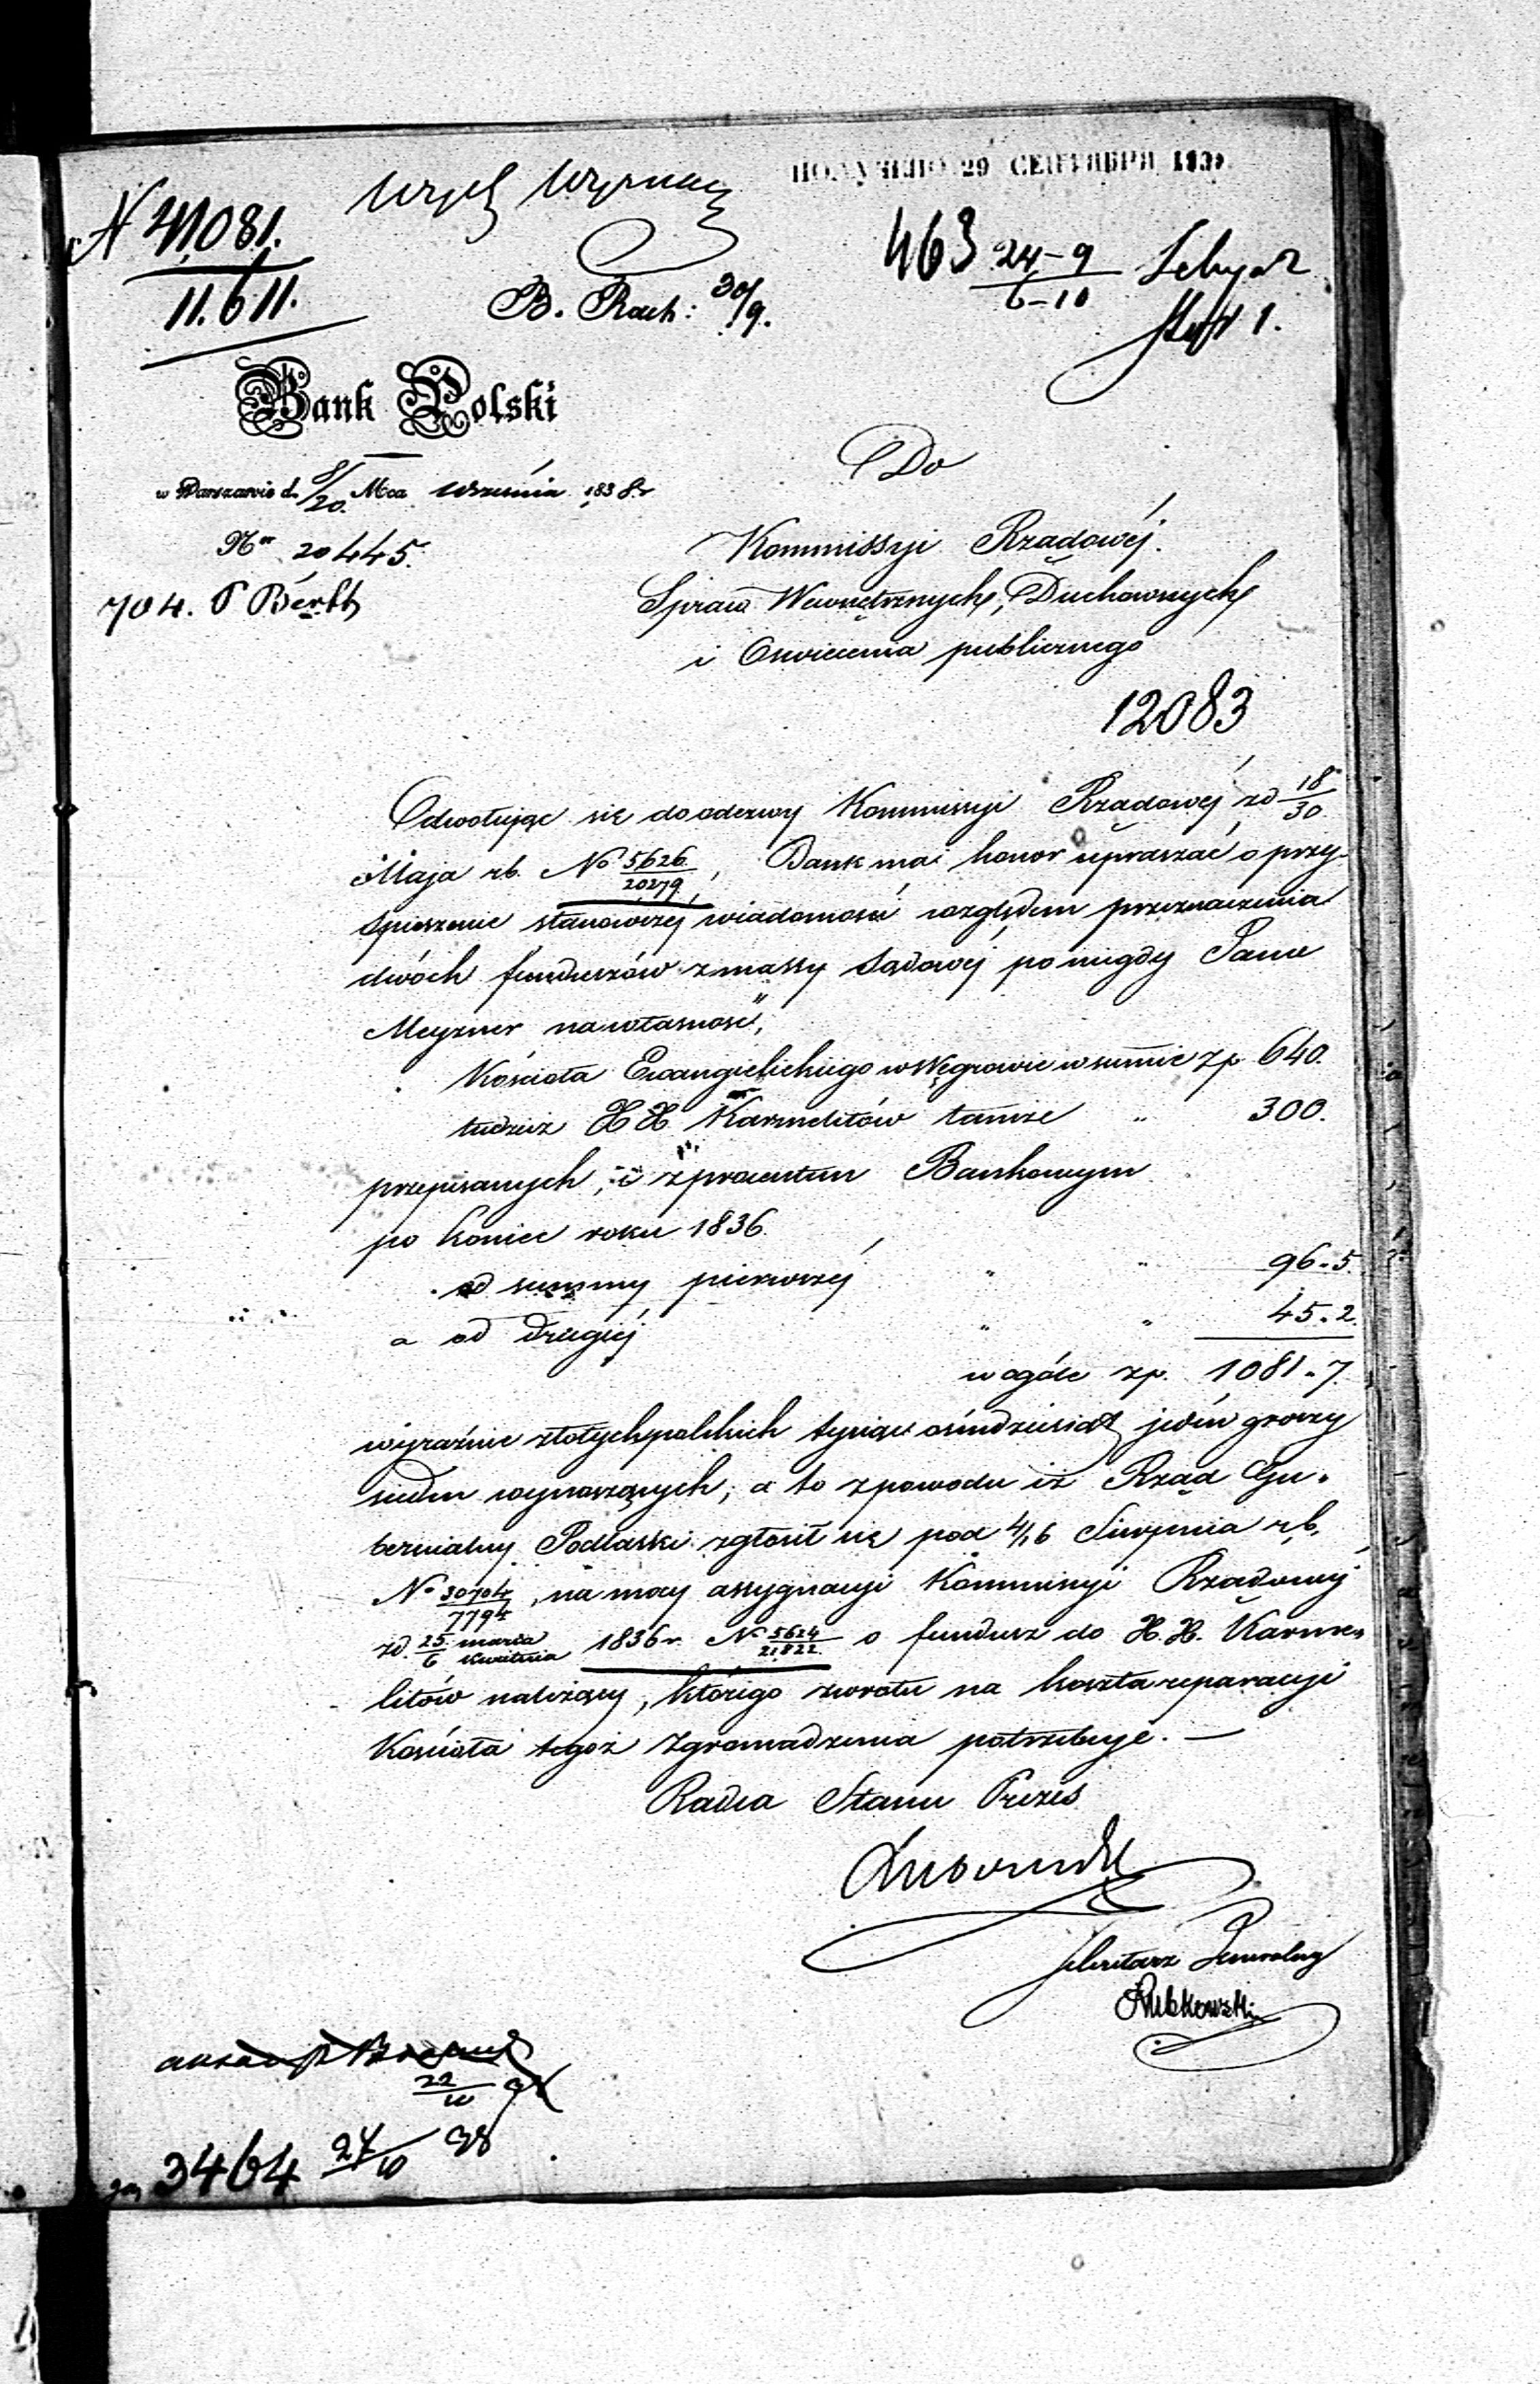 ПОЛУЧЕНО 29 СЕНТЯБРЯ 183
N 41081.
11.611.
B. Rach: 30/9.
463 24-9
6-10
Bank Polski
w Warszawie d. 8/20. Mca Września 1838 r
Nr 20445.
704.
Do
Kommissyi Rządowéj
Spraw Wewnętrznych, Duchownych
i Oswiecenia publicznego
12083
Odwołując się do odezwy Kommissyi Rządowéj zd 18/30
Maja rb. No 5626/20279, Bank ma honor upraszać o przy-
spieszenie stanowczéj wiadomości względem przeznaczenia
dwóch funduszów z massy Sądowéj pomiędzy Panu
Meyzner na własność,
Kościoła Ewangielickiego w Węgrowie w summie zp 640.
tudzież XX Karmelitów tamże " 300.
przepisanych, i z procentem Bankowym
po koniec roku 1836.
od summy pierwszéj " " 96.5.
a od drugiéj " " 45.2.
w ogóle zp. 1081.7.
wyraźnie złotych polskich tysiąc ośmdziesiąt jeden groszy
siedm wynoszących; a to z powodu iż Rząd Gu-
bernialny Podlaski zgłosił się pod 4/16 Sierpnia rb,
No 30704/7794, na mocy assygnacyi Kommissyi Rządowéj
zd. 25 marca/6 Kwietnia 1836 r. No 5624/21822 o fundusz do X.X. Karme-
litów należący, którego zwrotu na koszta reparacyi
Kościoła tegoż Zgromadzenia potrzebuje. —
Radca Stanu Prezes
Lubowidzki
Sekretarz Jeneralny
Rubkowski
22/10
3464 27/10 38